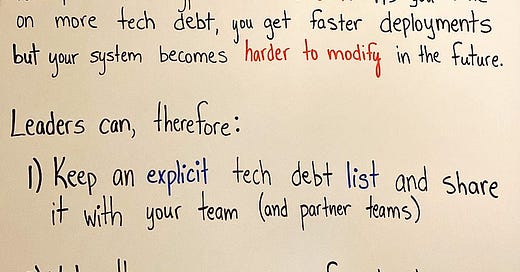 on more tech debt, you get faster deployments
but your system becomes harder to modify in the future.
Leaders can, therefore:
1) Keep an explicit tech debt list and share
it with your team (and partner teams)